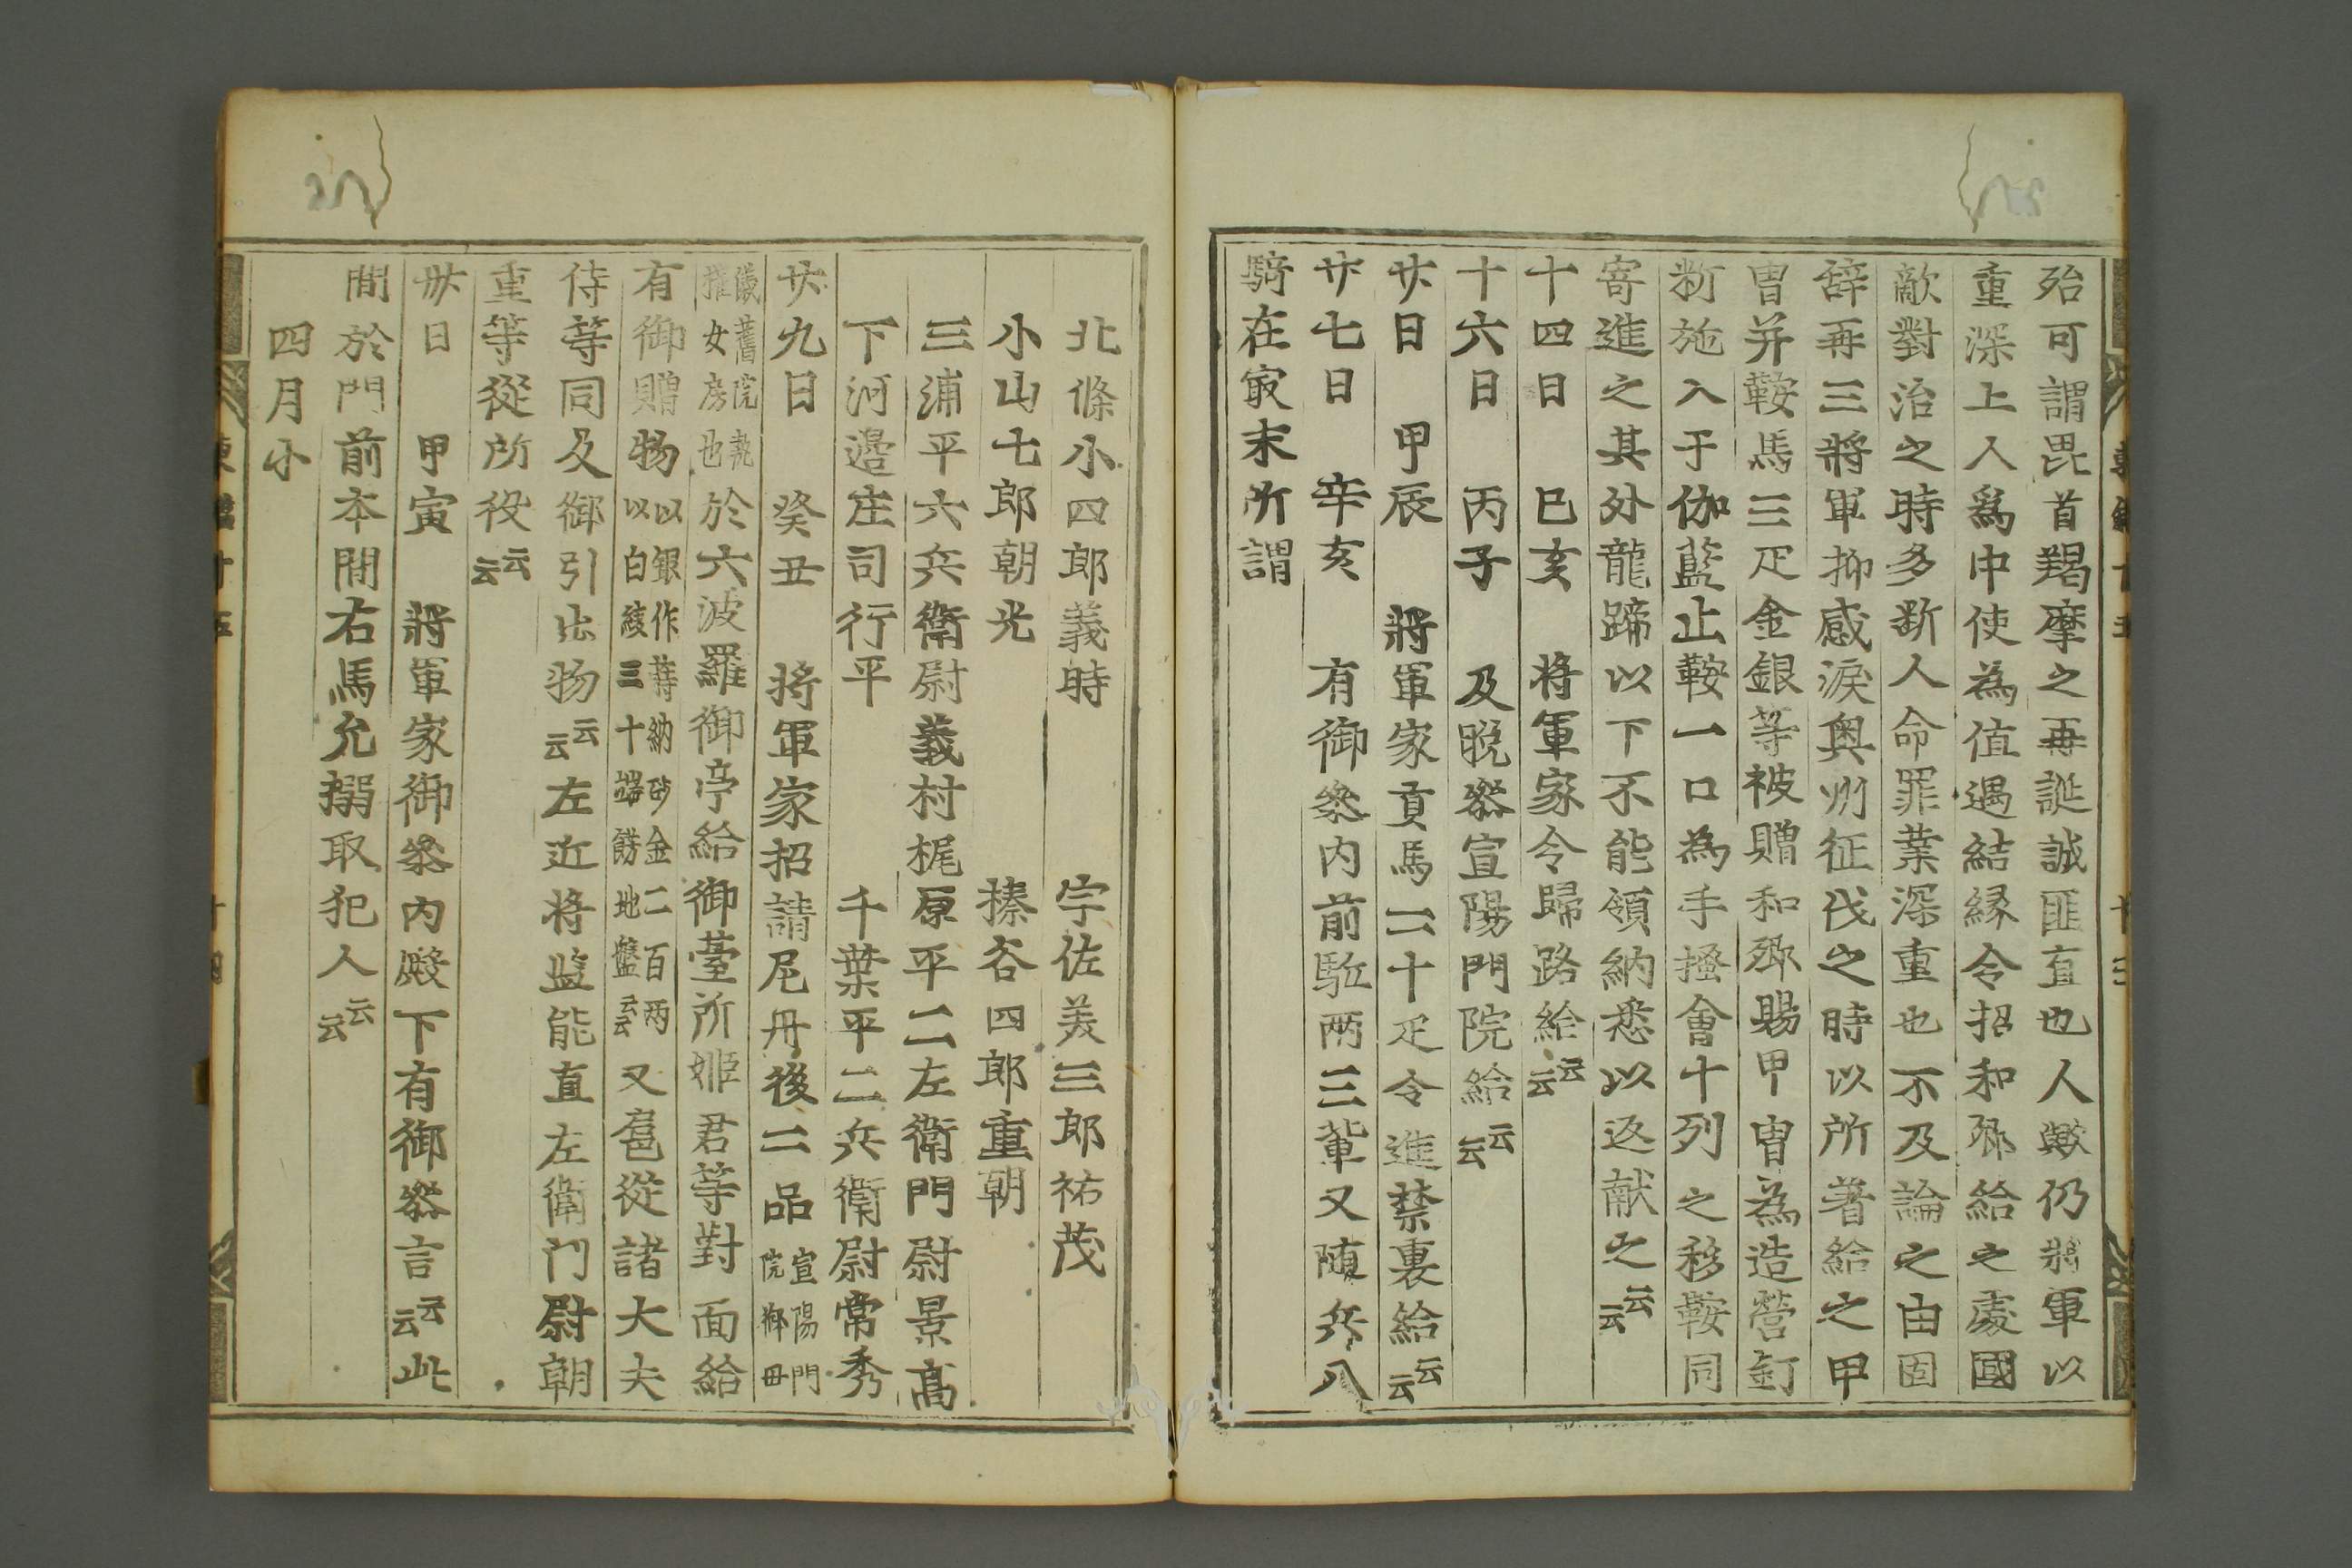 殆可謂毘首羯摩之再誕誠匪直也人歟仍將軍以
重深上人爲中使為值遇結縁令招和郷給之處國
敵對治之時多断人命罪業深重也不及論之由固
辞再三將軍抑感涙奥州征伐之時以所著給之甲
冑并鞍馬三疋金銀等被贈和郷賜甲冑為造營釘
新施入于伽藍止鞍一口為手搔會十列之移鞍同
寄進之其外龍蹄以下不能領納悉以返献之云云
十四日　巳亥　将軍家令歸路給云云
十六日　丙子　及晩参宣陽門院給云云
廿日　甲辰　將軍家貢馬二十疋令進禁裏給云云
廿七日　辛亥　有御参内前駈两三輩又随兵八
騎在㝡末所謂
北條小四郎義時　宇佐美三郎祐茂
小山七郎朝光　榛谷四郎重朝
三浦平六兵衛尉義村梶原平二左衛門尉景髙
下河邉庄司行平　千葉平二兵衛尉常秀
廿九日　癸丑　将軍家招請尼丹後二品宣陽門院御母
儀舊院執權女房也於六波羅御亭給御臺所姫君等對面給
有御贈物以銀作蒔納砂金二百两以白綾三十端餝地盤云云又扈從諸大夫
侍等同及御引出物云云左近将監能直左衛門尉朝
重等從所役云云
卅日　甲寅　將軍家御参内殿下有御参言云云此
間於門前本間右馬允搦取犯人云云
四月小